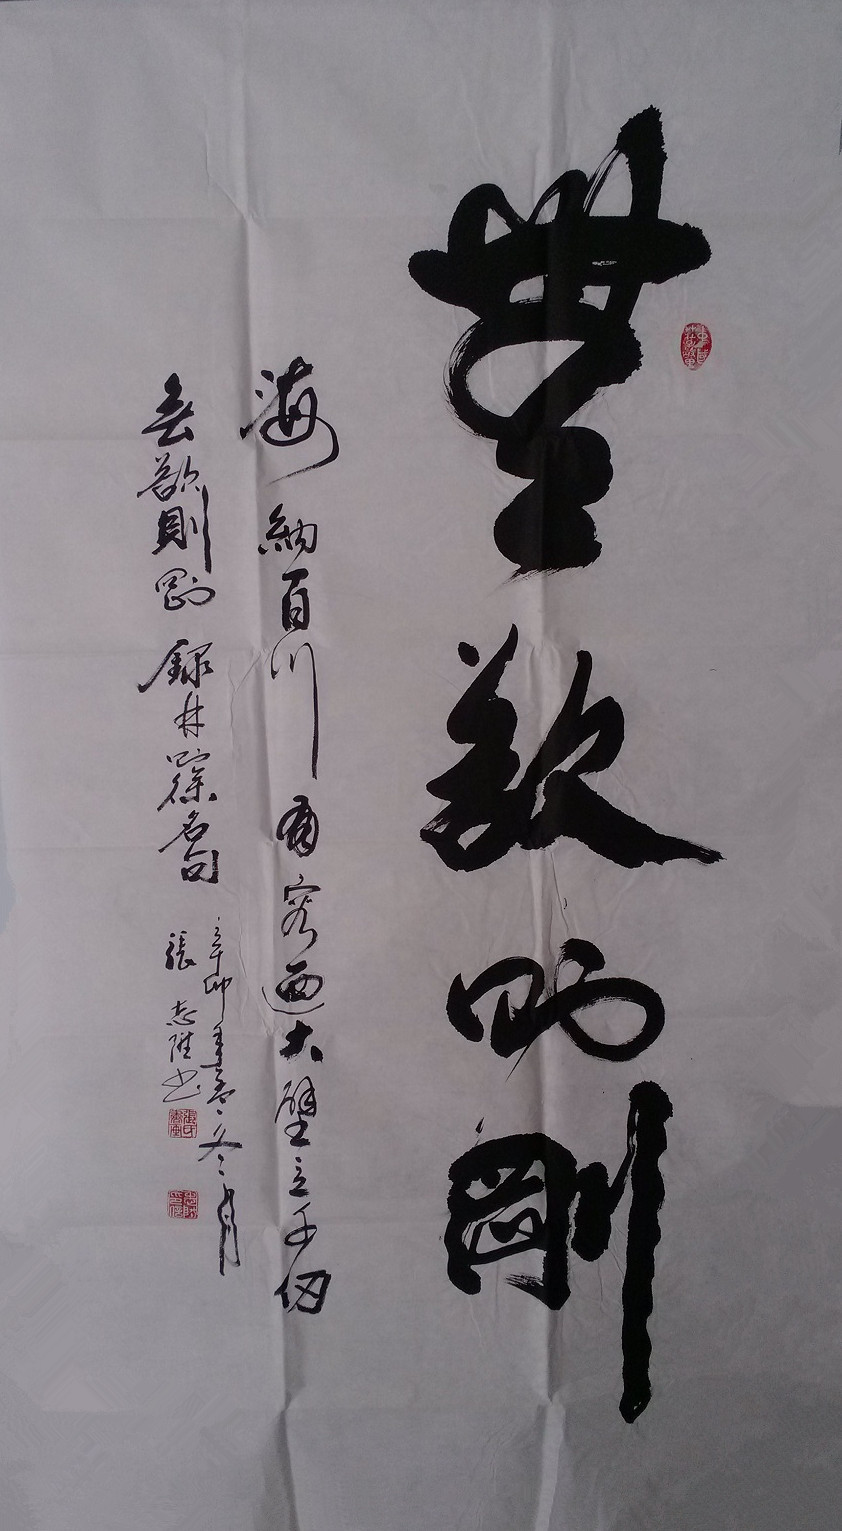 無欲則剛
海納百川有容迺大壁立千仞
無欲則剛 錄林則徐名句
辛卯年孟冬月
張志維書